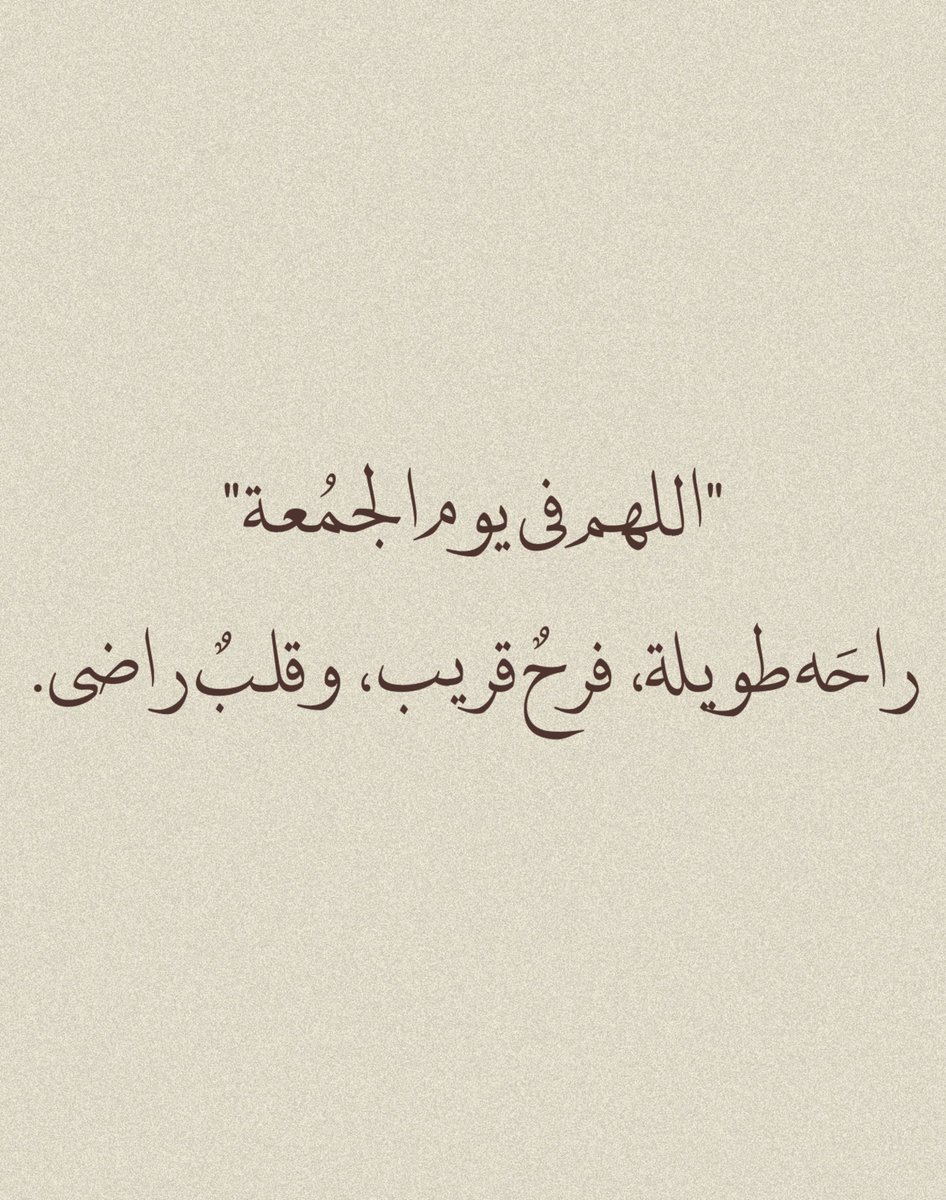 "اللهم في يوم الجمُعة"
راحَه طويلة، فرحٌ قريب، وقلبٌ راضي.